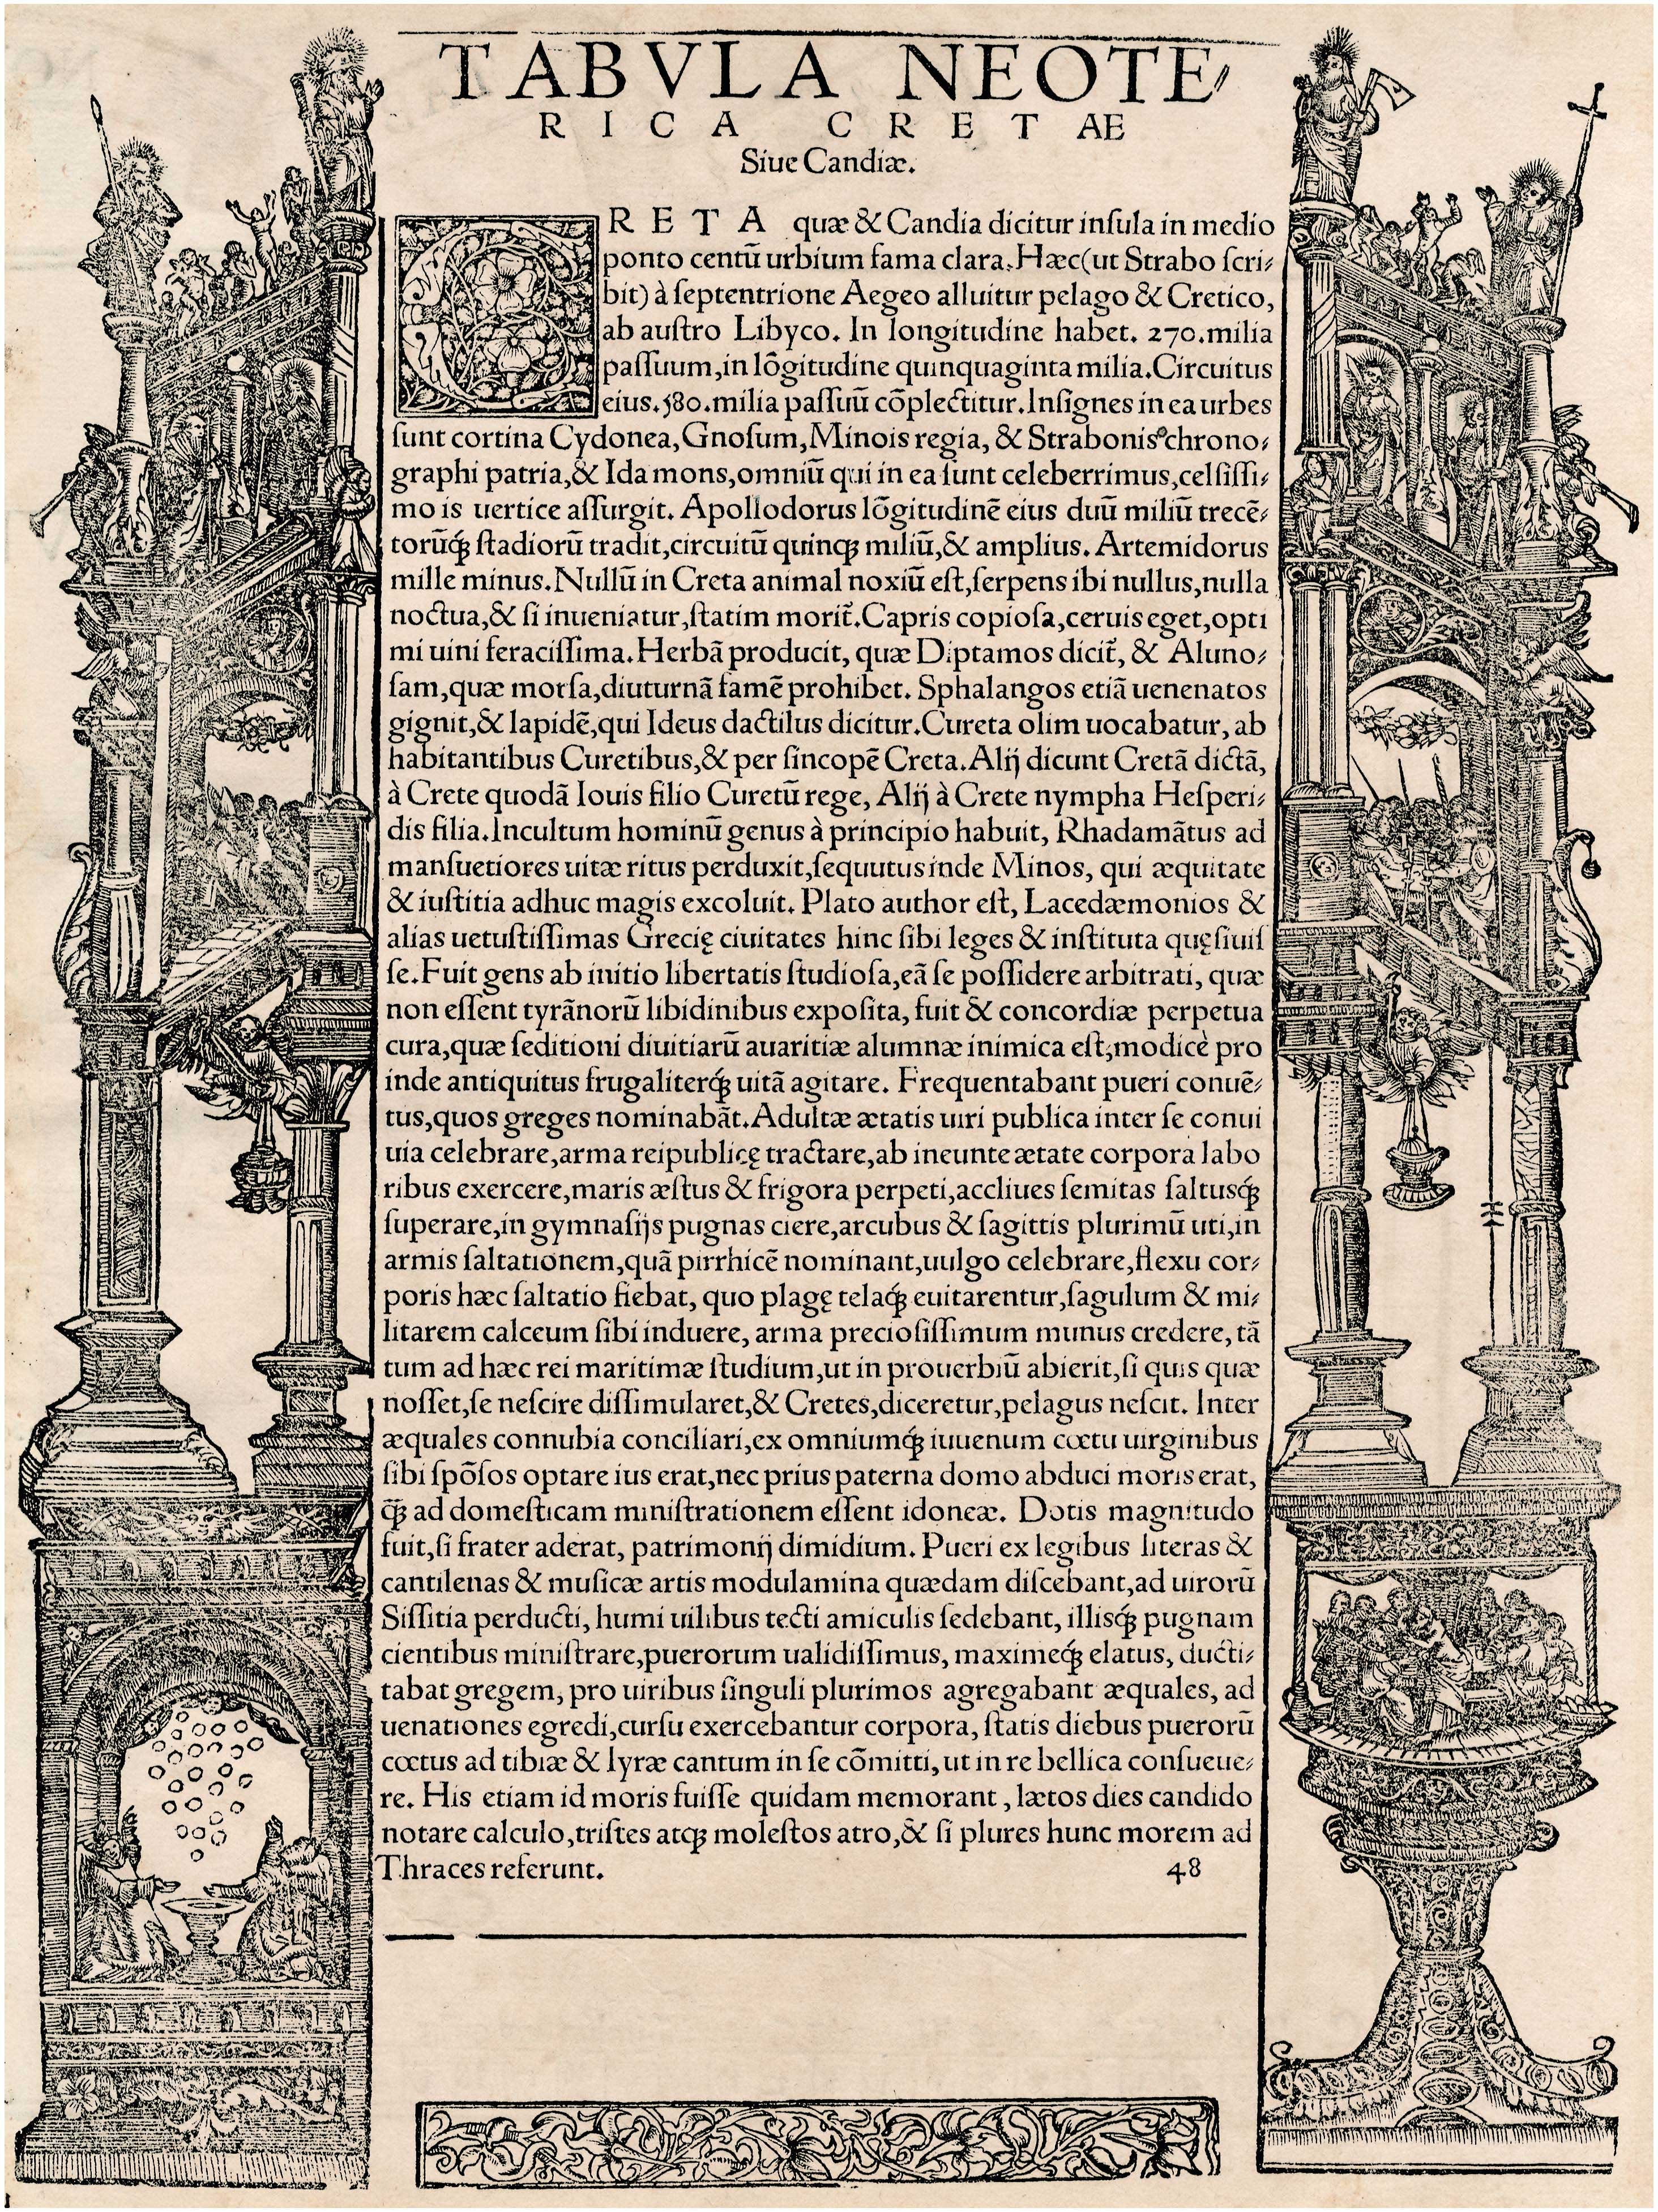 TABVLA NEOTE⸗
RICA CRETAE
Siue Candiæ.
CRETA quæ & Candia dicitur inſula in medio
ponto centū urbium fama clara. Hæc (ut Strabo ſcri⸗
bit) à ſeptentrione Aegeo alluitur pelago & Cretico,
ab auſtro Libyco. In longitudine habet. 270. milia
paſſuum, in lōgitudine quinquaginta milia. Circuitus
eius. 580. milia paſſuū cōplectitur. Inſignes in ea urbes
ſunt cortina Cydonea, Gnoſum, Minois regia, & Strabonis chrono⸗
graphi patria, & Ida mons, omniū qui in ea ſunt celeberrimus, celſiſſi⸗
mo is uertice aſſurgit. Apollodorus lōgitudinē eius duū miliū trecē⸗
torūq́ꝫ ſtadiorū tradit, circuitū quinqꝫ miliū, & amplius. Artemidorus
mille minus. Nullū in Creta animal noxiū eſt, ſerpens ibi nullus, nulla
noctua, & ſi inueniatur, ſtatim morit̄. Capris copioſa, ceruis eget, opti
mi uini feraciſſima. Herbā producit, quæ Diptamos dicit̄, & Aluno⸗
ſam, quæ morſa, diuturnā famē prohibet. Sphalangos etiā uenenatos
gignit, & lapidē, qui Ideus dactilus dicitur. Cureta olim uocabatur, ab
habitantibus Curetibus, & per ſincopē Creta. Alij dicunt Cretā dictā,
à Crete quodā Iouis filio Curetū rege, Alij à Crete nympha Heſperi⸗
dis filia. Incultum hominū genus à principio habuit, Rhadamātus ad
manſuetiores uitæ ritus perduxit, ſequutus inde Minos, qui æquitate
& iuſtitia adhuc magis excoluit. Plato author eſt, Lacedæmonios &
alias uetuſtiſſimas Grecię ciuitates hinc ſibi leges & inſtituta quęſiuiſ
ſe. Fuit gens ab initio libertatis ſtudioſa, eā ſe poſſidere arbitrati, quæ
non eſſent tyrānorū libidinibus expoſita, fuit & concordiæ perpetua
cura, quæ ſeditioni diuitiarū auaritiæ alumnæ inimica eſt, modicè pro
inde antiquitus frugaliterq́ꝫ uitā agitare. Frequentabant pueri conuē⸗
tus, quos greges nominabāt. Adultæ ætatis uiri publica inter ſe conui
uia celebrare, arma reipublicę tractare, ab ineunte ætate corpora labo
ribus exercere, maris æſtus & frigora perpeti, accliues ſemitas ſaltusq́ꝫ
ſuperare, in gymnaſijs pugnas ciere, arcubus & ſagittis plurimū uti, in
armis ſaltationem, quā pirrhicē nominant, uulgo celebrare, flexu cor⸗
poris hæc ſaltatio fiebat, quo plagę telaq́ꝫ euitarentur, ſagulum & mi⸗
litarem calceum ſibi induere, arma precioſiſſimum munus credere, tā
tum ad hæc rei maritimæ ſtudium, ut in prouerbiū abierit, ſi quis quæ
noſſet, ſe neſcire diſſimularet, & Cretes, diceretur, pelagus neſcit. Inter
æquales connubia conciliari, ex omniumq́ꝫ iuuenum cœtu uirginibus
ſibi ſpōſos optare ius erat, nec prius paterna domo abduci moris erat,
q̄ꝫ ad domeſticam miniſtrationem eſſent idoneæ. Dotis magnitudo
fuit, ſi frater aderat, patrimonij dimidium. Pueri ex legibus literas &
cantilenas & muſicæ artis modulamina quædam diſcebant, ad uirorū
Siſſitia perducti, humi uilibus tecti amiculis ſedebant, illisq́ꝫ pugnam
cientibus miniſtrare, puerorum ualidiſſimus, maximeq́ꝫ elatus, ducti⸗
tabat gregem, pro uiribus ſinguli plurimos agregabant æquales, ad
uenationes egredi, curſu exercebantur corpora, ſtatis diebus puerorū
cœtus ad tibiæ & lyræ cantum in ſe cōmitti, ut in re bellica conſueue⸗
re. His etiam id moris fuiſſe quidam memorant, lætos dies candido
notare calculo, triſtes atqꝫ moleſtos atro, & ſi plures hunc morem ad
Thraces referunt. 48